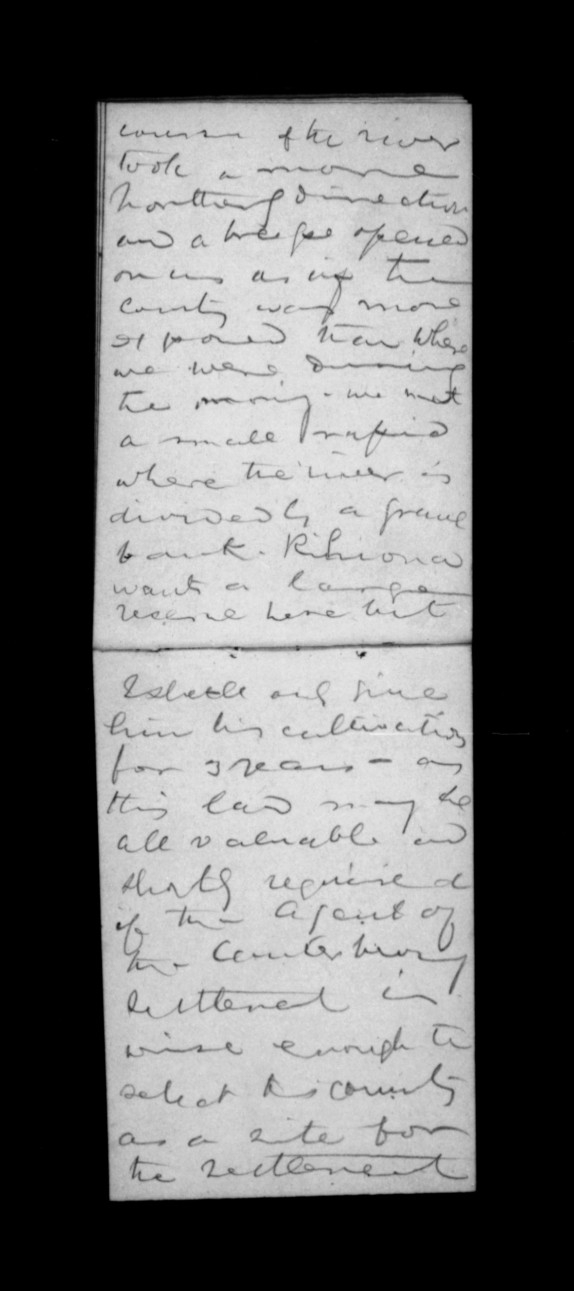 course of the river
took a more
northerly direction
and a breeze opened
on us as if the
country was more
exposed than where
we were during
the morning - we met
a small rapid
where the river is
divided by a gravel
bank. Rihiona
wants a larger
reserve here but
I shall only give
him his cultivation
for 3 years - as
this land may be
all valuable and
shortly required
if the Agent of
the Canterbury
settlement is
wise enough to
select this country
as a site for
the settlement